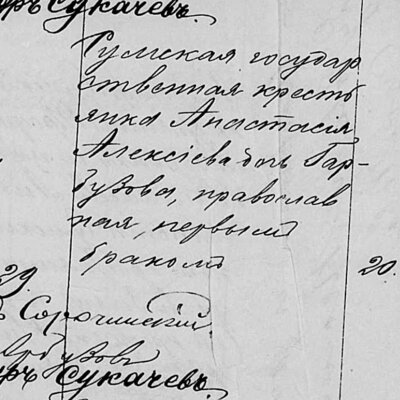 ръ Сукачевъ.
Сумская государ
ственная кресть
янка Анастасія
Алексіева дочь Гар-
бузова, православ
ная, первымъ
бракомъ
29. 20.
Сорочинскій.
Гарбузовъ
ръ Сукачевъ.